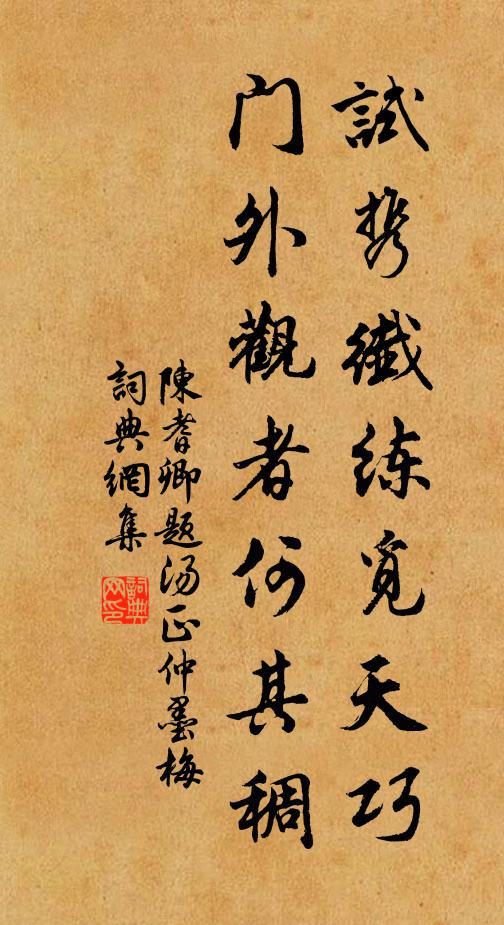 試携纖练覓天巧
門外觀者何其稠
陳耆卿題湯正仲墨梅
詞典網集
詞典網印